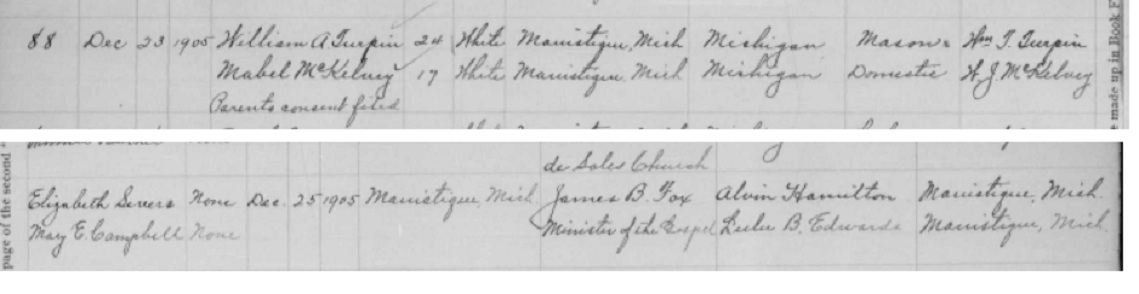 88 Dec 23 1905 William A Turpin 24 White Manistique, Mich Michigan Mason Wm T. Turpin
Mabel McKelvey 17 White Manistique, Mich Michigan Domestic H J McKelvey
Parents consent filed
made up in Book
de Sales Church
Elizabeth None Dec. 25 1905 Manistique, Mich. James B. Fox Alvin Hamilton Manistique, Mich.
Mary E. Campbell None Minister of the Gospel B. Edwards Manistique, Mich.
page of the second